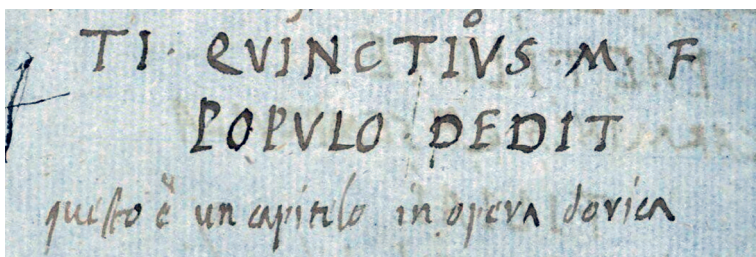 TI · QVINCTIVS · M · F
POPVLO · DEDIT
questo è un capitelo in opera dorica